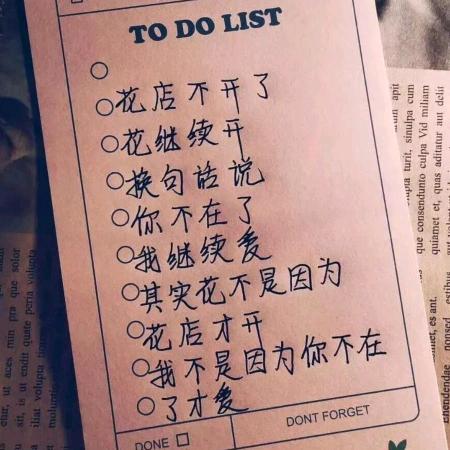 TO DO LIST
花店不开了
花继续开
换句话说
你不在了
我继续爱
其实花不是因为
花店才开
我不是因为你不在
了才爱
DONE
DONT FORGET